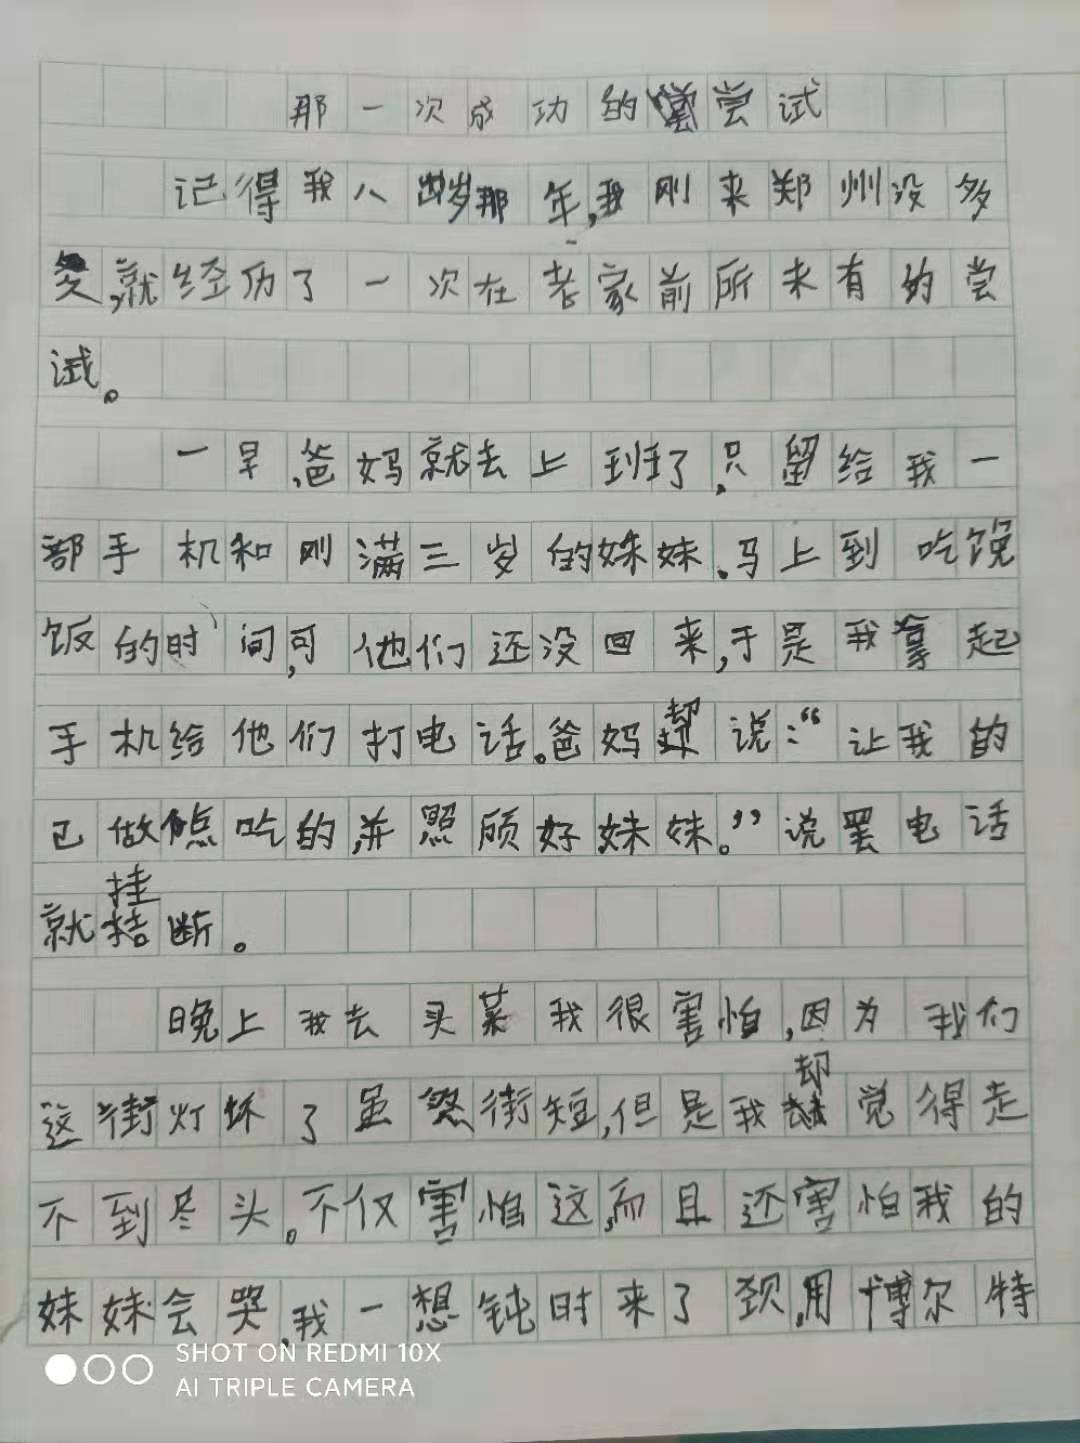 那一次成功的尝试
记得我八岁那年,我刚来郑州没多
久,就经历了一次在老家前所未有的尝
试。
一早,爸妈就去上班了,只留给我一
部手机和刚满三岁的妹妹.马上到吃晚
饭的时间,可他们还没回来,于是我拿起
手机给他们打电话.爸妈却说:“让我的
已做点吃的,并照顾好妹妹。”说罢电话
就挂断。
晚上我去买菜我很害怕,因为我们
这街灯坏了虽然街短,但是我却觉得走
不到尽头。不仅害怕这,而且还害怕我的
妹妹会哭,我一想钝时来了颈,用博尔特
SHOT ON REDMI 10X
AI TRIPLE CAMERA